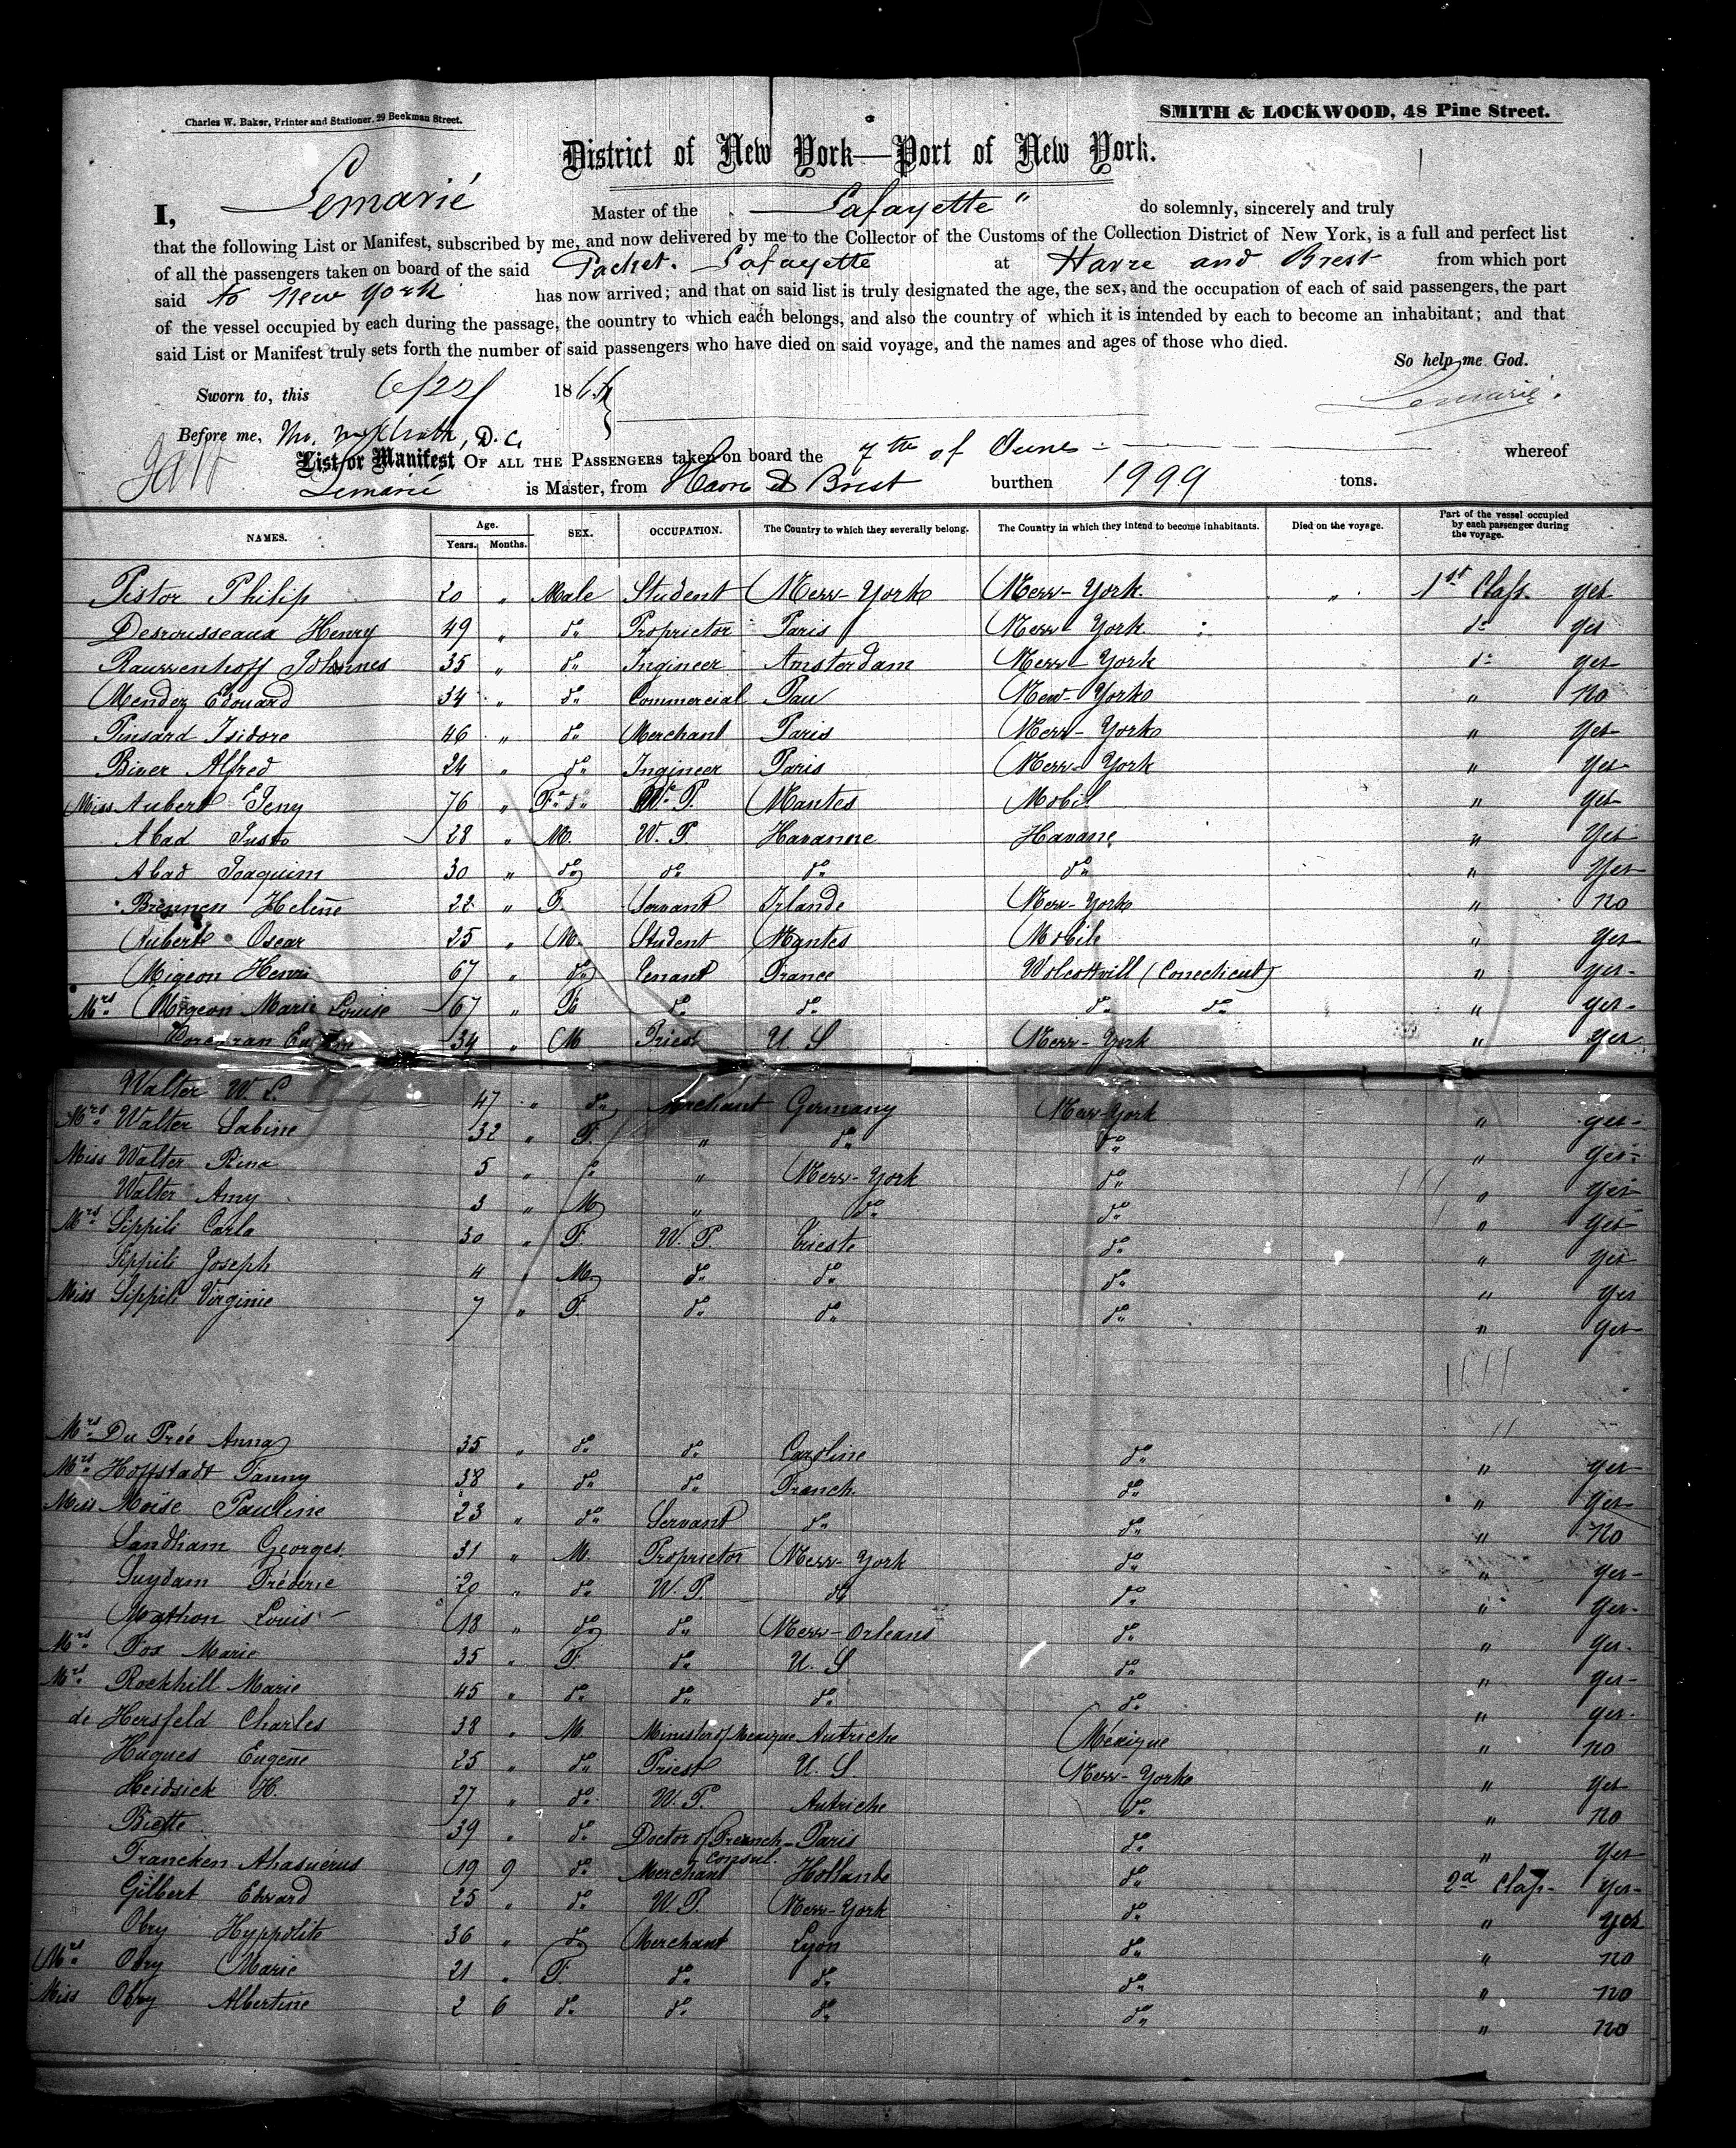 Charles W. Baker, Printer and Stationer, 29 Beekman Street.
SMITH & LOCKWOOD, 48 Pine Street.
District of New York—Port of New York.
I, Lemarié Master of the Lafayette " do solemnly, sincerely and truly
that the following List or Manifest, subscribed by me, and now delivered by me to the Collector of the Customs of the Collection District of New York, is a full and perfect list
of all the passengers taken on board of the said Packet. Lafayette at Havre and Brest from which port
said to New York has now arrived; and that on said list is truly designated the age, the sex, and the occupation of each of said passengers, the part
of the vessel occupied by each during the passage, the country to which each belongs, and also the country of which it is intended by each to become an inhabitant; and that
said List or Manifest truly sets forth the number of said passengers who have died on said voyage, and the names and ages of those who died.
So help me God.
Sworn to, this 6/22/ 186
Lemarié.
Before me, D. C.
List or Manifest OF ALL THE PASSENGERS taken on board the 7th of June - whereof
Lemarié is Master, from Havre & Brest burthen 1999 tons.
NAMES. Age. Years. Months. SEX. OCCUPATION. The Country to which they severally belong. The Country in which they intend to become inhabitants. Died on the voyage. Part of the vessel occupied by each passenger during the voyage.
Pistor Philip 20 " Male Student New-York New-York. " 1st Class yes
Desrousseaux Henry 49 " do Proprietor Paris New York do yes
Rauwenhoff Johannes 35 " do Ingineer Amsterdam New-York do yes
Mendez Edouard 34 " do Commercial Pau New-York " no
Pinsard Isidore 46 " do Merchant Paris New-York " yes
Biver Alfred 24 " do Ingineer Paris New-York " yes
Miss Aubert Jeny 76 " Fe W. P. Nantes Mobil " yes
Abad Justo 28 " M. W. P. Havanne Havane " yes
Abad Joaquim 30 " do do do do " yes
Brennen Helène 22 " F Servant Irlande New-York " no
Aubert Oscar 25 " M. Student Nantes Mobile " yes
Migeon Henri 67 " do Tenant France Wolcottvill (Conecticut) " yes
Mrs Migeon Marie Louise 67 " F do do do do " yes
34 " M Priest U. S New-York " yes
Walter W. L. 47 " do Merchant Germany New York " yes
Mrs Walter Sabine 32 " F. " do do " yes
Miss Walter Rina 5 " " New-York do " yes
Walter Amy 3 " M " do do " yes
Mrs Sippili Carla 30 " F. W. P. Trieste do " yes
Sippili Joseph 4 " M do do do " yes
Miss Sippili Virginie 7 " F. do do do " yes
Mrs Du Prée Anna 35 " do do Caroline do " yes
Mrs Hoffstadt Fanny 38 " do do Franch. do " yes
Miss Moïse Pauline 23 " do Servant do do " no
Sandham Georges. 31 " M. Proprietor New-York do " yes
Suydam Fréderic 20 " do W. P. do do " yes
Mathon Louis 18 " do do New-Orleans do " yes
Mrs Fos Marie 35 " F. do U. S do " yes
Mrs Rockhill Marie 45 " do do do do " yes
de Hersfeld Charles 38 " M Minister of Mexique Autriche Méxique " no
Hugues Eugène 25 " do Priest U. S. New-York " yes
Heidsick H. 27 " do W. P. Autriche do " no
Biette 39 " do Doctor of Freanch consul. Paris do " yes
Francken Ahasuérus 19 9 do Merchant Hollande do 2d Class yes
Gilbert Edward 25 " do W. P. New-York do " yes
Obry Hyppolite 36 " do Merchant Lyon do " no
Mrs Obry Marie 21 " F. do do do " no
Miss Obry Albertine 2 6 do do do do " no